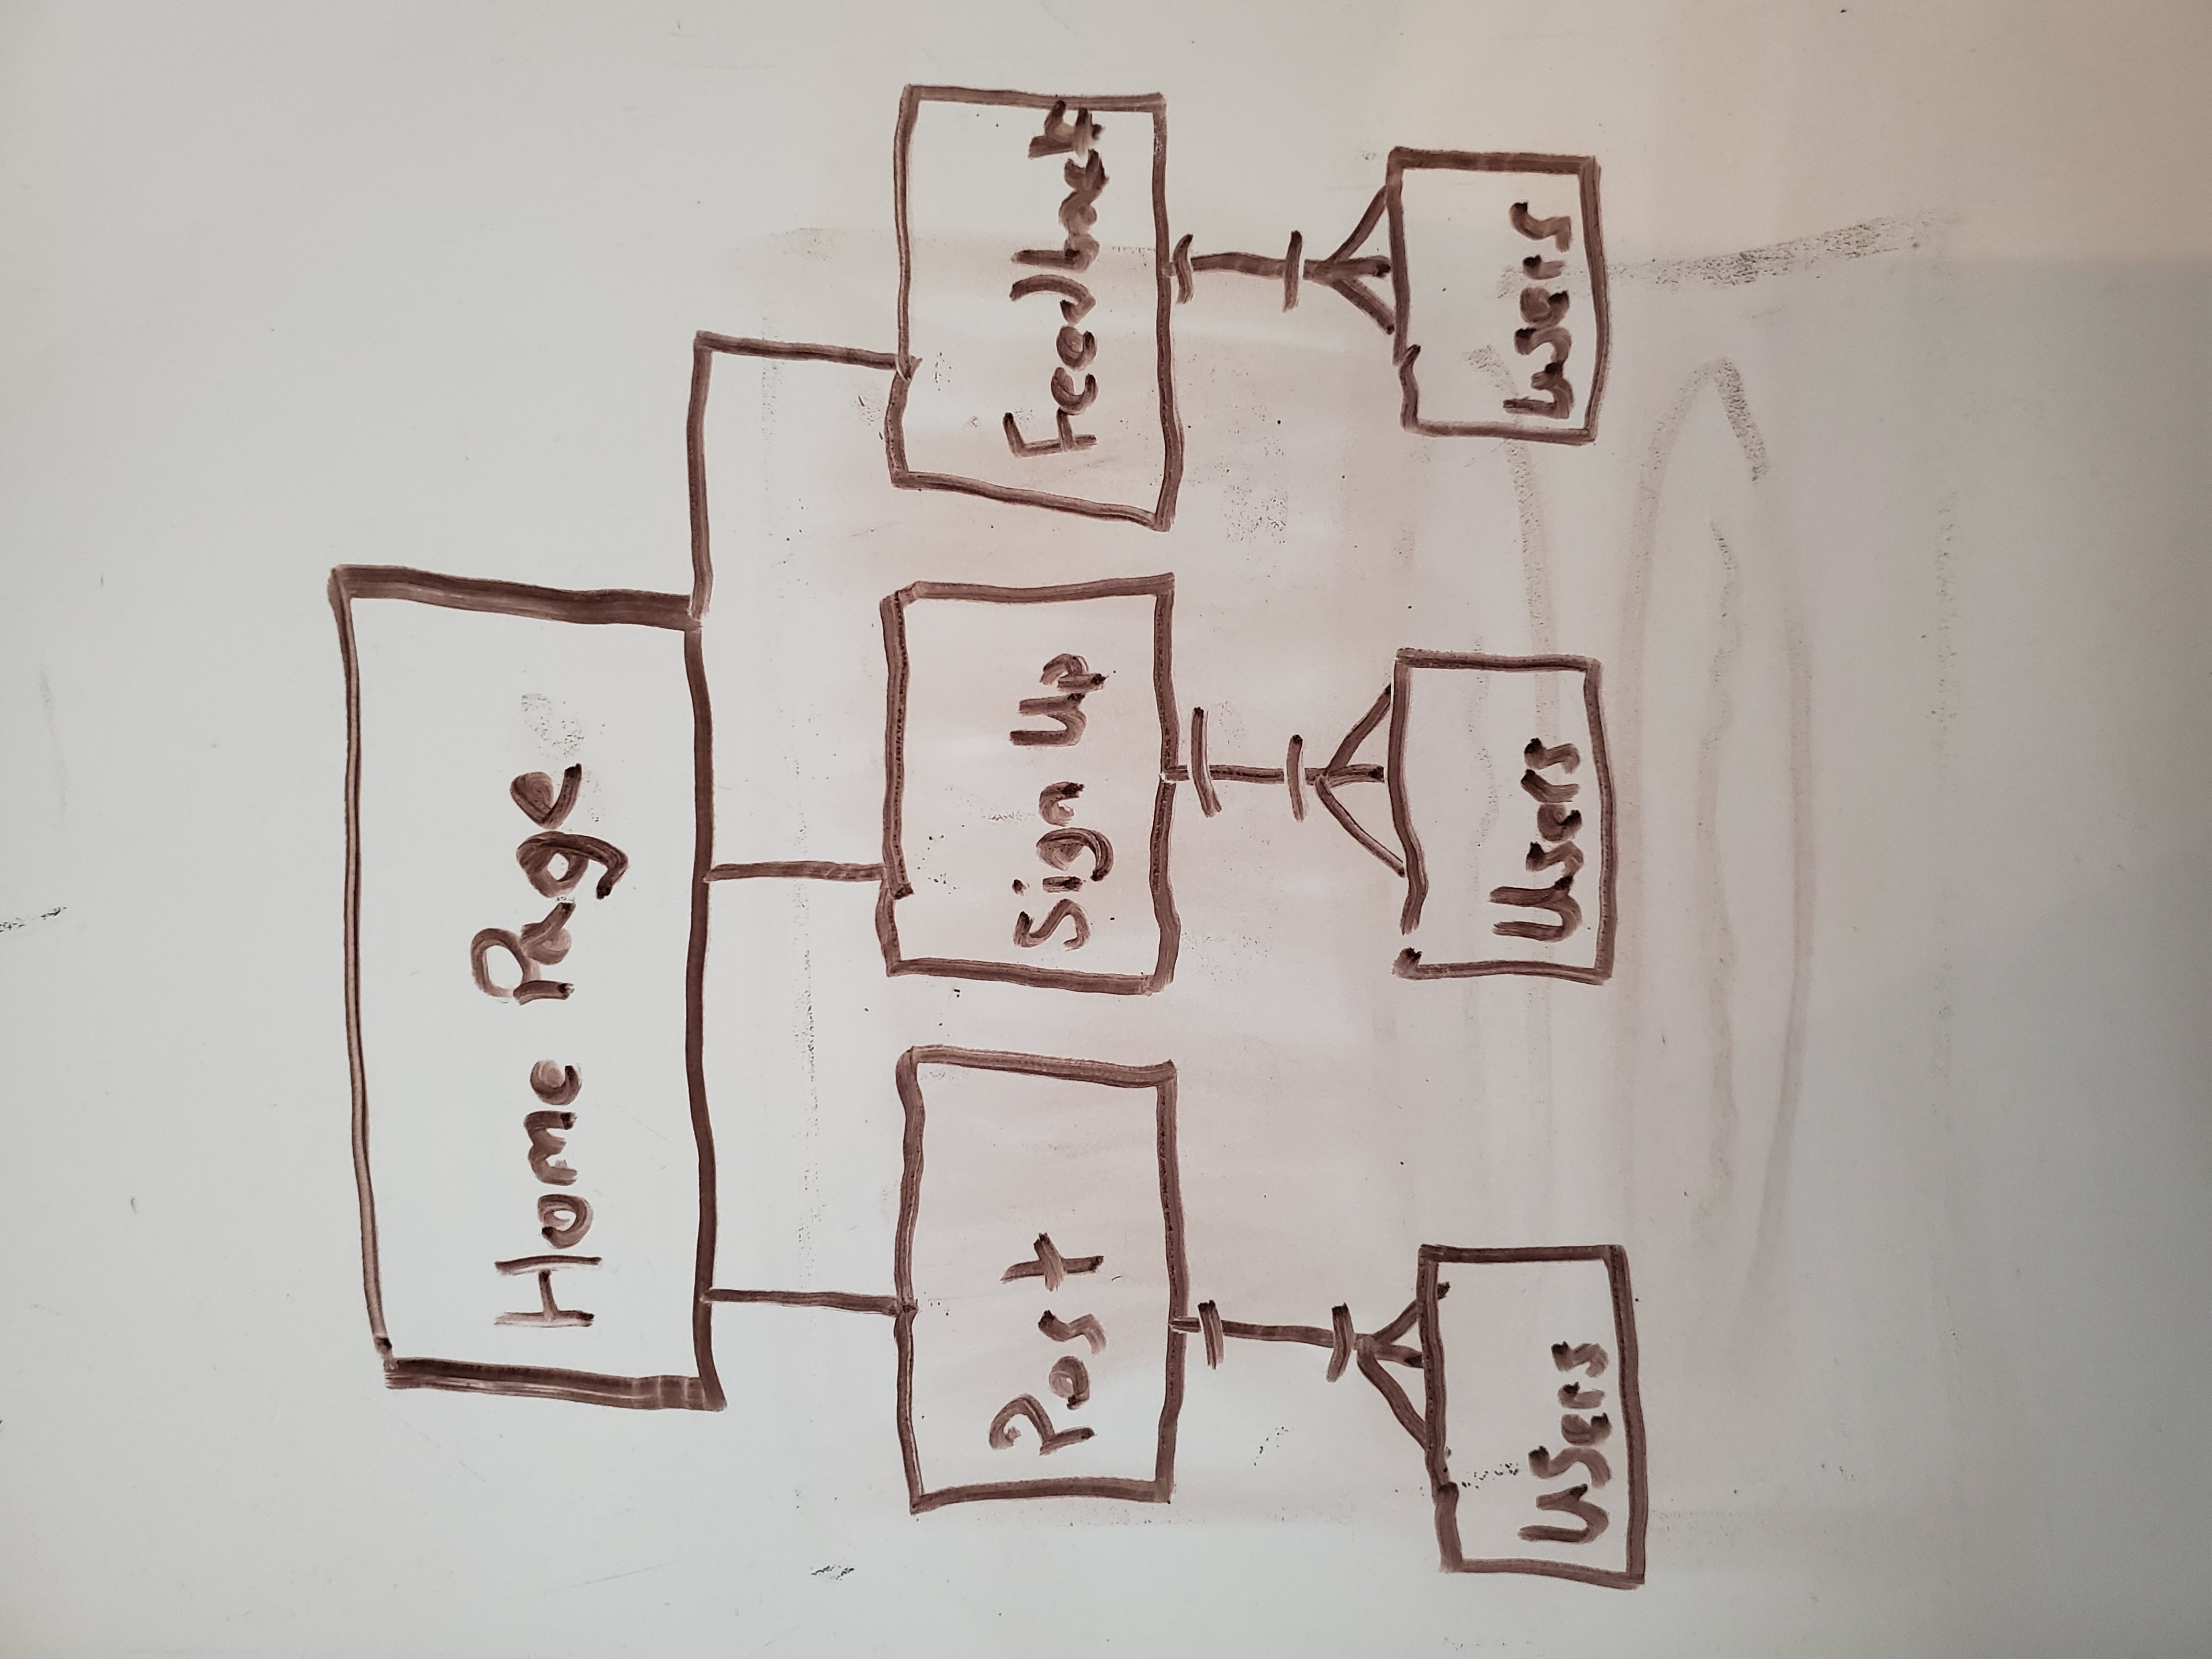 Home Page
Post
Sign Up
Feedback
Users
Users
Users